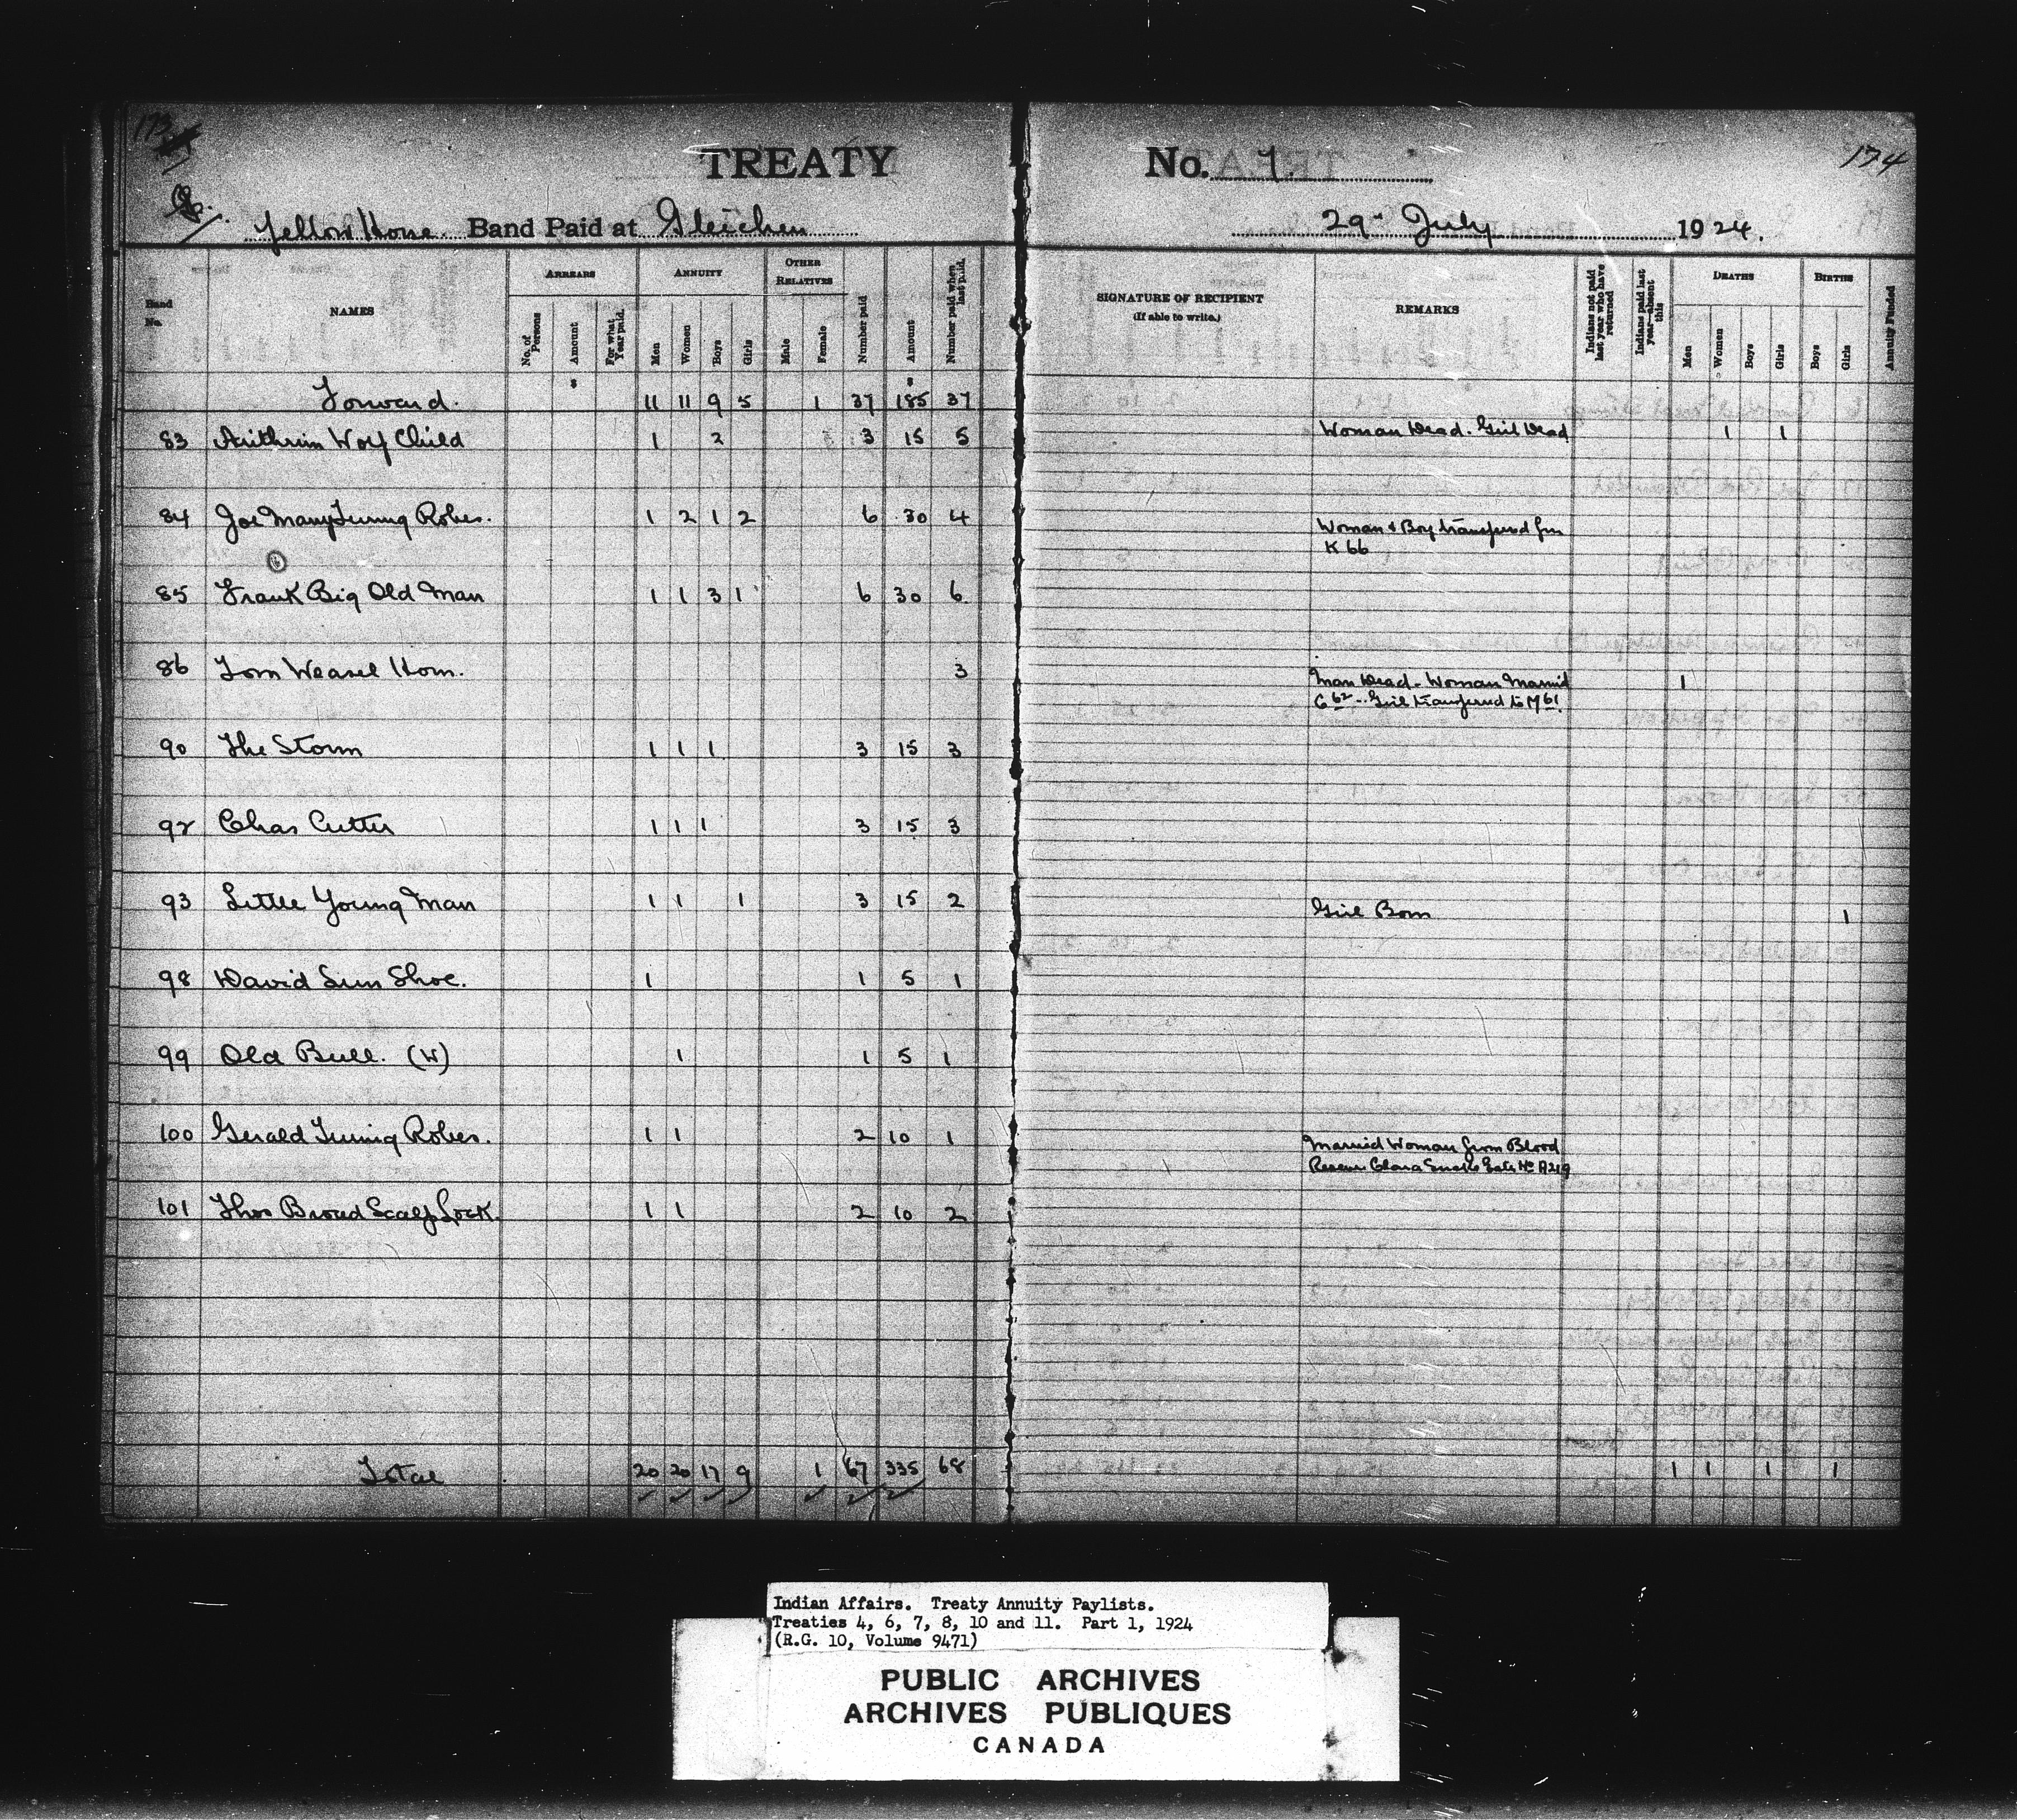 173
174
TREATY No. 7.
Yellow Horse Band Paid at Gleichen 29 July 1924.
Band No. NAMES ARREARS ANNUITY OTHER RELATIVES
No. of Persons Amount For what Year paid. Men Women Boys Girls Male Female Number paid Amount Number paid when last paid.
SIGNATURE OF RECIPIENT (If able to write.) REMARKS Indians not paid last year who have returned Indians paid last year—absent this DEATHS BIRTHS
Men Women Boys Girls Boys Girls Annuity Funded
$ $
Forward. 11 11 9 5 1 37 185 37
83 Wolf Child 1 2 3 15 5 Woman Dead. Girl Dead 1 1
84 Joe Many Turning Robes. 1 2 1 2 6 30 4 Woman & Boy transferred from
K 66
85 Frank Big Old Man 1 1 3 1 6 30 6
86 Tom Weasel Horn. 3 Man Dead - Woman Married 1
G 62 - Girl transferred to M 61
90 The Storm 1 1 1 3 15 3
92 Chas Cutter 1 1 1 3 15 3
93 Little Young Man 1 1 1 3 15 2 Girl Born 1
98 David Sun Shoe. 1 1 5 1
99 Old Bull. (W) 1 1 5 1
100 Gerald Turning Robes. 1 1 2 10 1 Married Woman from Blood
Reserve Clara No A219
101 Thos Broad Scalp Lock. 1 1 2 10 2
Total 20 20 17 9 1 67 335 68 1 1 1 1
Indian Affairs. Treaty Annuity Paylists.
Treaties 4, 6, 7, 8, 10 and 11. Part 1, 1924
(R.G. 10, Volume 9471)
PUBLIC ARCHIVES
ARCHIVES PUBLIQUES
CANADA